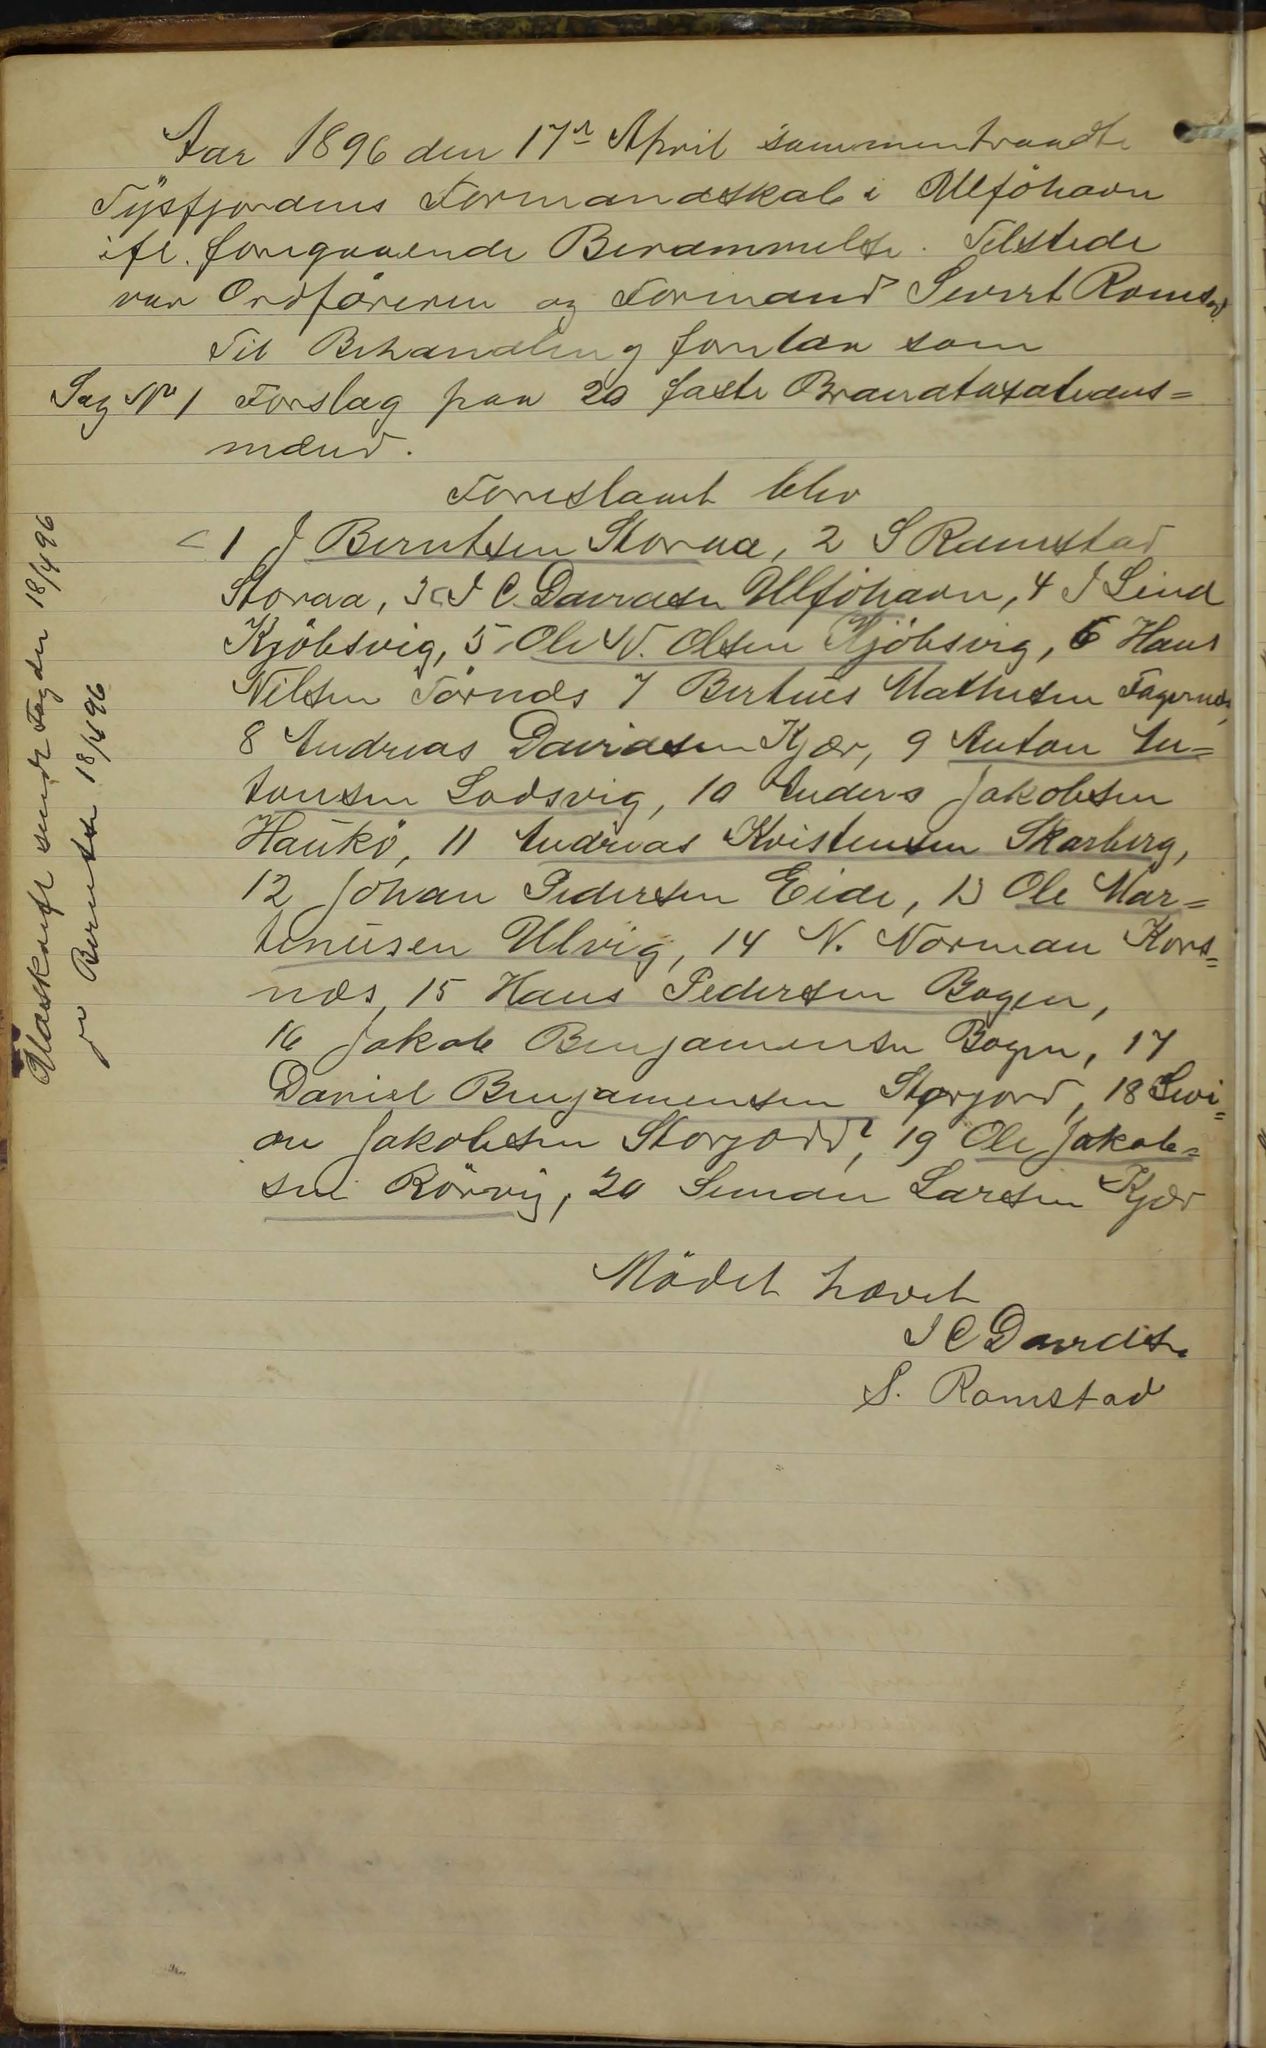 Aar 1896 den 17de April sammentraadte
Tysfjordens Formandskab i Ulføhavn
ifl. foregaaende Berammelse. Tilstede
var Ordføreren og Formand Sivert Ramstad
Til Behandling forelaa som
Sag No 1 Forslag paa 20 faste Brandtaxations=
mænd.
Foreslaaet blev
1 J Berntsen Storaa, 2 S Ramstad
Storaa, 3 J C. Davidsen Ulføhavn, 4 J Lind
Kjøbsvig, 5 Ole N. Olsen Kjøbsvig, 6 Hans
Nilsen Tørnæs 7 Bertius Mathisen Fagernæs,
8 Andreas Davidsen Kjær, 9 Anton An=
tonsen Ladsvig, 10 Anders Jakobsen
Haukø, 11 Andreas Kristensen Skarberg,
12 Johan Pedersen Eide, 13 Ole Mar=
tinusen Ulvig, 14 N. Norman Kors=
næs, 15 Hans Pedersen Bogen,
16 Jakob Benjaminsen Bogen, 17
Daniel Benjaminsen Storjord, 18 Simi=
on Jakobsen Storjord, 19 Ole Jakob=
sen Rørvig, 20 Simon Larsen Kjær
Mødet hævet
J C Davidsen
S. Ramstad
Udskrift sendt Fogden 18/4 96
J Berntsen 18/4 96